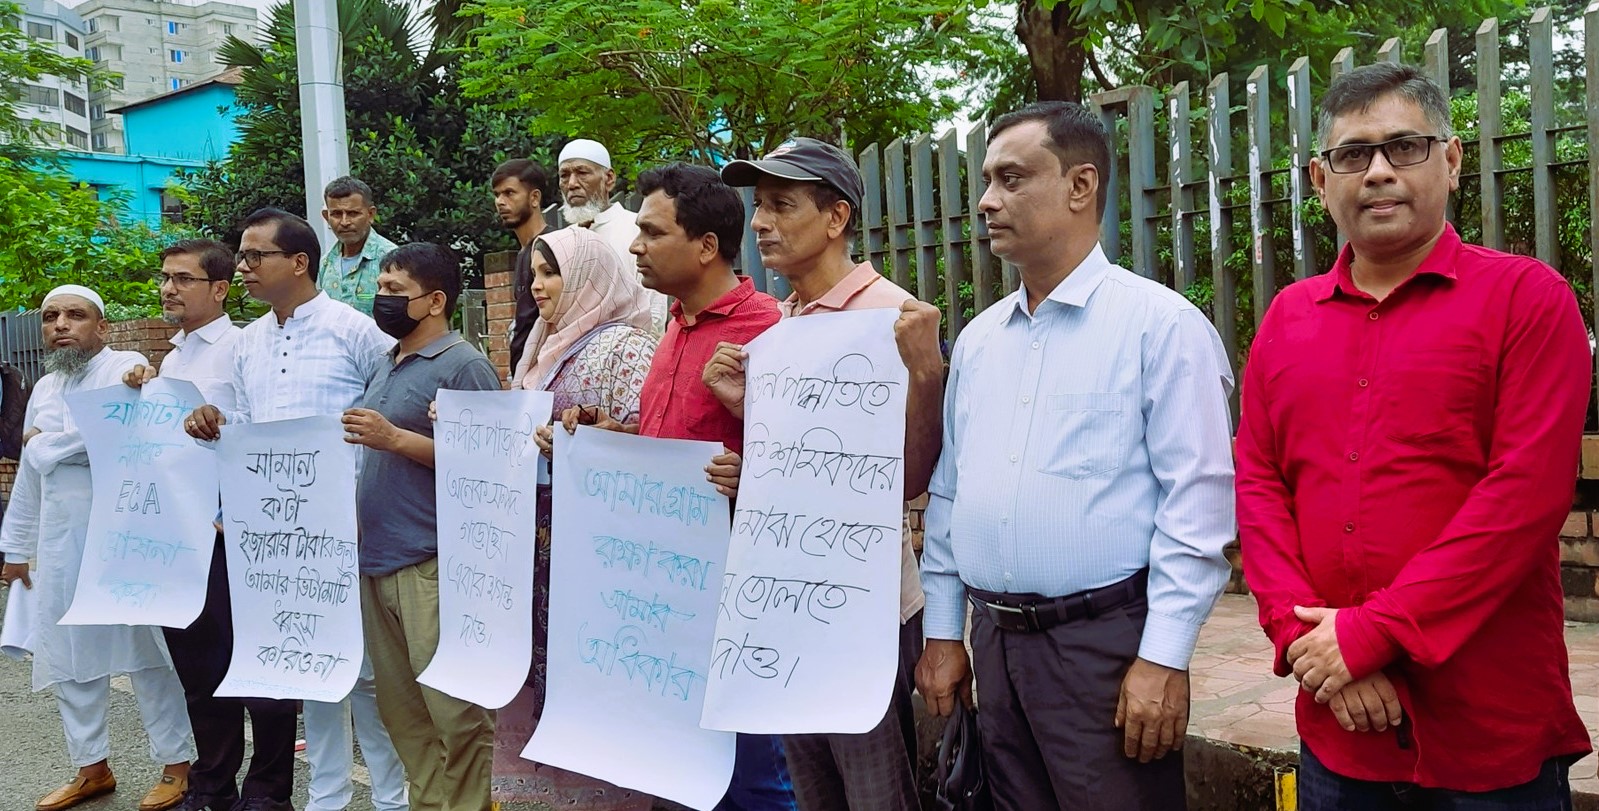 নদীকে
ECA
ঘোষনা
করা
সামান্য
কটা
ইজারার টাকার জন্য
আমার ভিটামাটি
ধ্বংস
করিওনা
নদীর পাড়টে
অনেক সম্পদ
গড়েছো
এবার খ্যান্ত
দাও।
আমার গ্রাম
রক্ষা করা
আমার
অধিকার
পদ্ধতিতে
শ্রমিকদের
মাঝ থেকে
তোলতে
দাও।